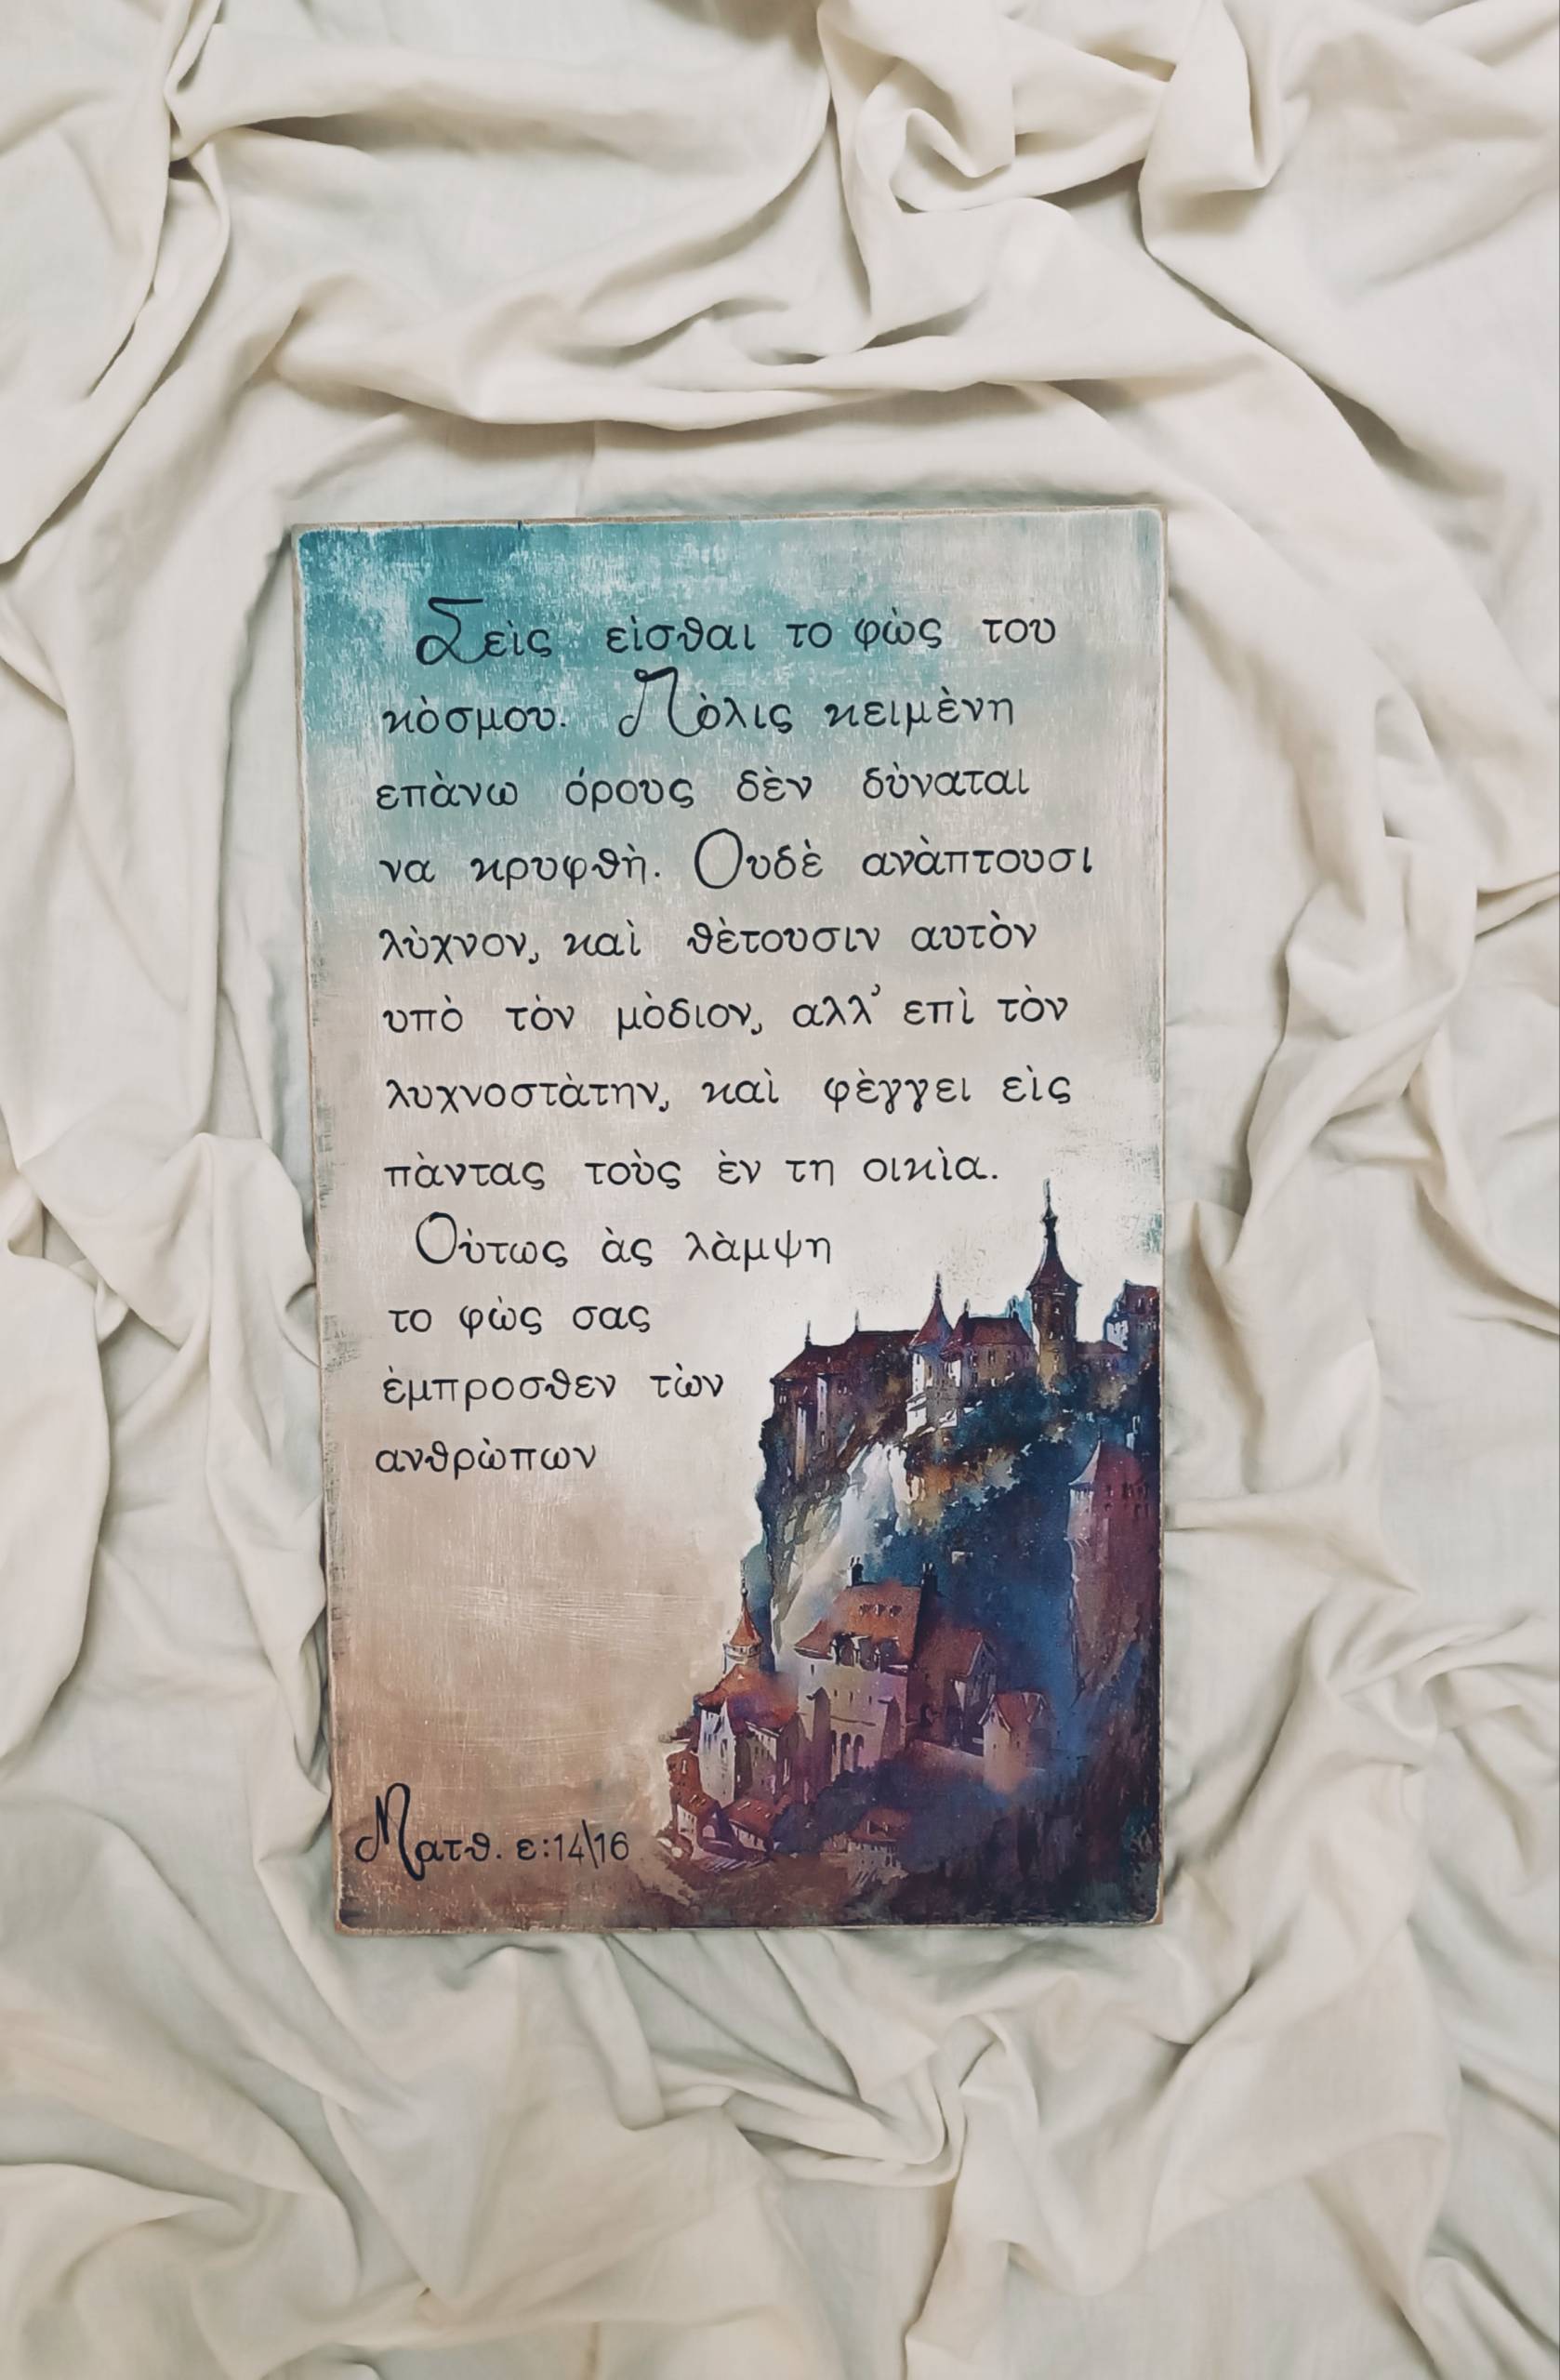 Σεὶς εὶσθαι το φὼς του
κὸσμου. Πὸλις κειμὲνη
επὰνω όρους δὲν δὺναται
να κρυφθὴ. Ουδὲ ανὰπτουσι
λὺχνον, καὶ θὲτουσιν αυτὸν
υπὸ τὸν μὸδιον, αλλ’ επὶ τὸν
λυχνοστὰτην, καὶ φὲγγει εὶς
πὰντας τοὺς ὲν τη οικὶα.
Οὺτως ὰς λὰμψη
το φὼς σας
ὲμπροσθεν τὼν
ανθρὼπων
Ματθ. ε:14\16